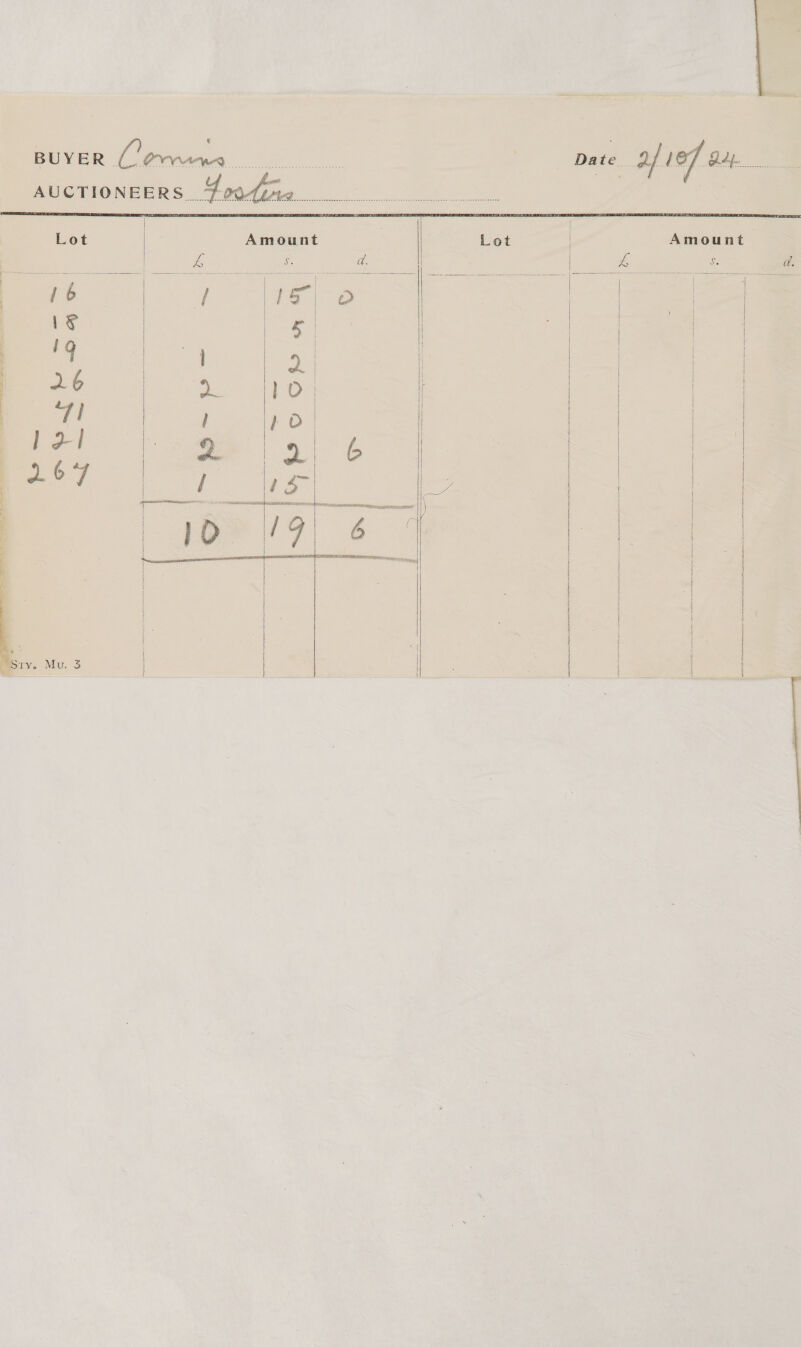 BUYER
Date 2/10/24
AUCTIONEERS
Lot Amount Lot Amount
£ s. d. £ s. d.
16 1 15 0
18 5
19 1 2
26 2 10
41 1 10
121 2 2 6
267 1 15
10 19 6
Sty. Mu. 3